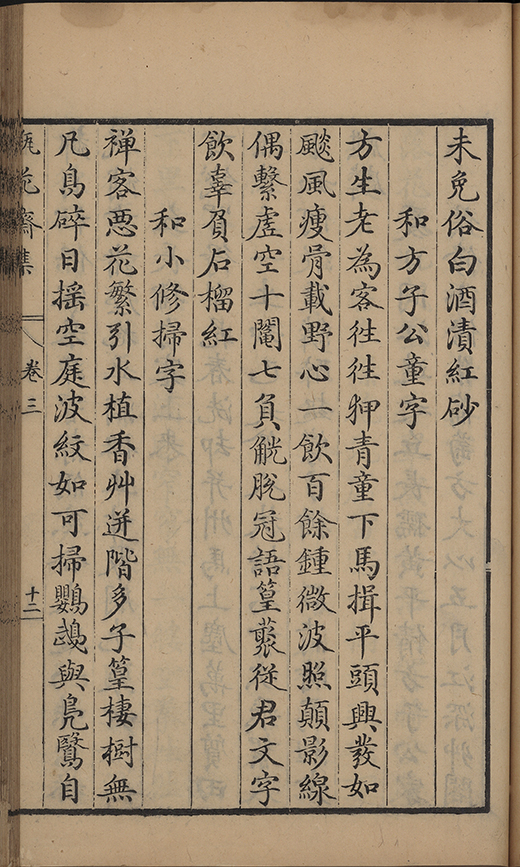 未免俗白酒漬紅砂
和方子公童字
方生老為客徃徃狎青童下馬揖平頭興發如
颷風瘦骨載野心一飲百餘鍾微波照顛影線
偶繫虛空十闈七負觥脫冠語篁藂從君文字
飲辜負石榴紅
和小修掃字
禅客惡花繁引水植香艸迸階多子篁棲樹無
凡鳥碎日揺空庭波紋如可掃鸚鵡與鳧鷖自
瓶花齋集
卷三
十二